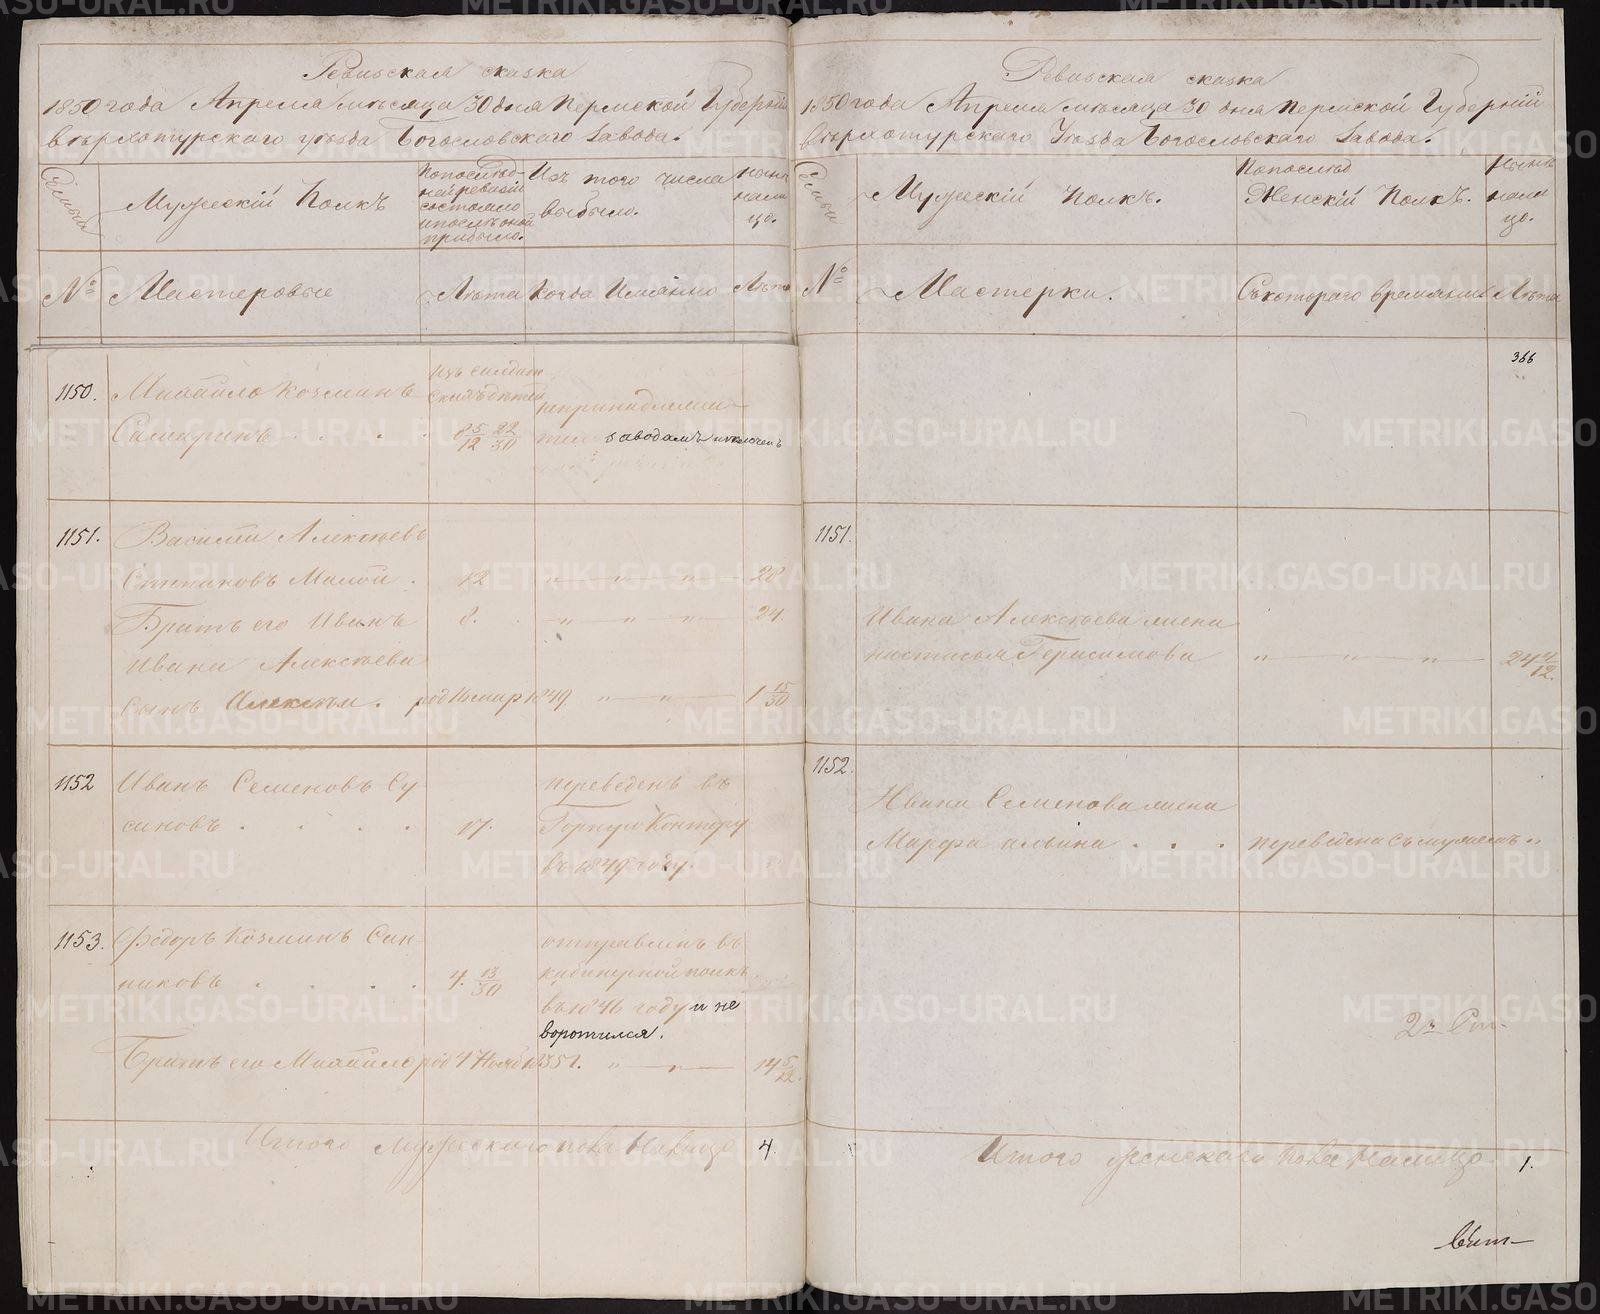 Ревизская сказка
1850 года Апреля месяца 30 дня Пермской Губерніи
Верхотурского уѣзда Богословского Завода.
Семьи
Мужескій Полкъ
По послѣд-
ней ревизіи
состояло
и послѣ оной
прибыло.
Изъ того числа
выбыло.
Нынѣ
нали
цо.
№
Мастеровые
Лѣта
Когда Имянно
Лѣта
1150.
Михайло Козминъ
Изъ салдат
скихъ дѣтей
непринадлежи-
8 5/12 22/30
заводамъ исключенъ
1151.
Василей Алексѣевъ
Степановъ Малой .
12
" — " — " —
28
Братъ его Иванъ
8.
" — " — " —
24.
Ивана Алексѣева
Сынъ Алексѣй. род 16 мар 1849
" — " —
1 15/30
1152
Иванъ Семеновъ Су
синовъ . . . .
17.
переведенъ въ
Горную Контору
въ 1849 году.
1153.
Федоръ Козминъ Сан
никовъ . . . .
4. 13/30
отправленъ въ
въ 1846 году и не
воротился.
Братъ его Михайло род 4 Нояб 1835 г.
" — " —
14 5/12.
Итого мужескаго пола Налицо
4.
Ревизская сказка
1850 года Апреля месяца 30 дня Пермской Губерній
Верхотурского Уѣзда Богословского Завода.
Семьи
Мужескій Полкъ.
По послѣд
Женскій Полкъ.
Нынѣ
нали
цо.
№
Мастерки.
Съ которого времяни
Лѣта
366
1151.
Ивана Алексѣева жена
Настасья Герасимова
" — " — " —
24 4/12.
1152.
Ивана Семенова жена
Марфа Ильина . . .
переведена съ мужемъ "
Итого женскаго пола Налицо.
1.
METRIKI.GASO-URAL.RU